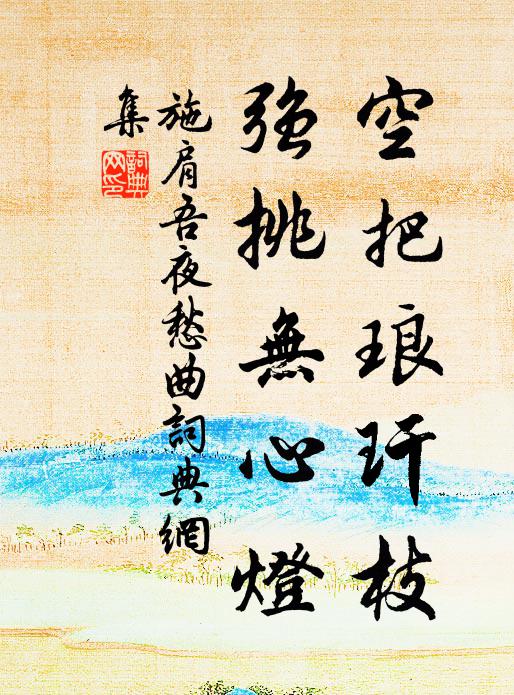 空把琅玕枝
強挑無心燈
施肩吾夜愁曲詞典網
集
詞典
网印